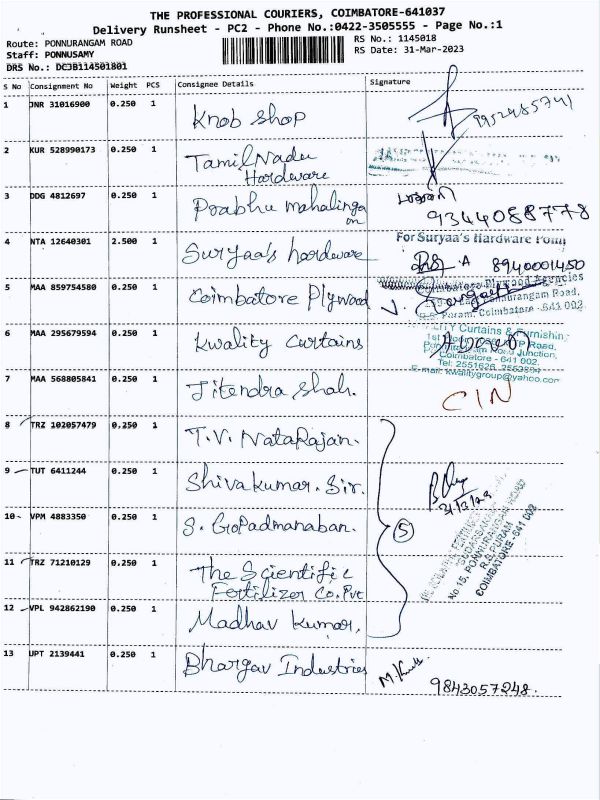 THE PROFESSIONAL COURIERS, COIMBATORE-641037
Delivery Runsheet - PC2 - Phone No.:0422-3505555 - Page No.:1
Route: PONNURANGAM ROAD
RS No.: 1145018
Staff: PONNUSAMY
RS Date: 31-Mar-2023
DRS No.: DCJB114501801
S No Consignment No Weight PCS Consignee Details Signature
1 JNR 31016900 0.250 1 Knob shop 9952485741
2 KUR 528990173 0.250 1 Tamil Nadu
Hardware
3 DDG 4812697 0.250 1 Prabhu mahalinga
om 9344088778
4 NTA 12640301 2.500 1 Suryaa's hardware
For Suryaa's Hardware Point
8940001450
5 MAA 859754580 0.250 1 Coimbatore Plywood
Coimbatore Plywood Agencies
Ponnurangam Road,
R.S. Puram, Coimbatore - 641 002
6 MAA 295679594 0.250 1 Kwality Curtains
Curtains & Furnishing
TP Road,
Junction,
Coimbatore - 641 002.
Tel: 2551626,
E-mail: kwalitygroup@yahoo.com
7 MAA 568805841 0.250 1 Jitendra Shah.
CIN
8 TRZ 102057479 0.250 1 T.V. NataRajan.
9 TUT 6411244 0.250 1 Shivakumar. Sir.
31/3/23
10 VPM 4883350 0.250 1 S. GoPadmanaban.
5
No 15, PONNURANGAM ROAD
R.S. PURAM
COIMBATORE - 641 002
11 TRZ 71210129 0.250 1 The Scientific
Fertilizer Co. Pvt
12 VPL 942862190 0.250 1 Madhav Kumar.
13 UPT 2139441 0.250 1 Bhargav Industries
9843057248.